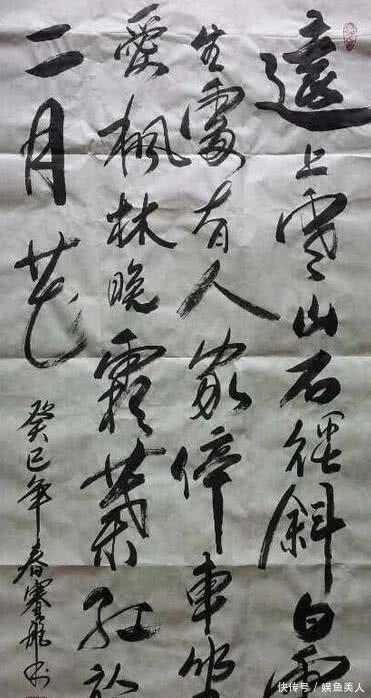 遠上寒山石徑斜白雲
生處有人家停車坐
愛楓林晚霜葉紅於
二月花
癸巳年春賽飛书
快传号/娱鱼美人